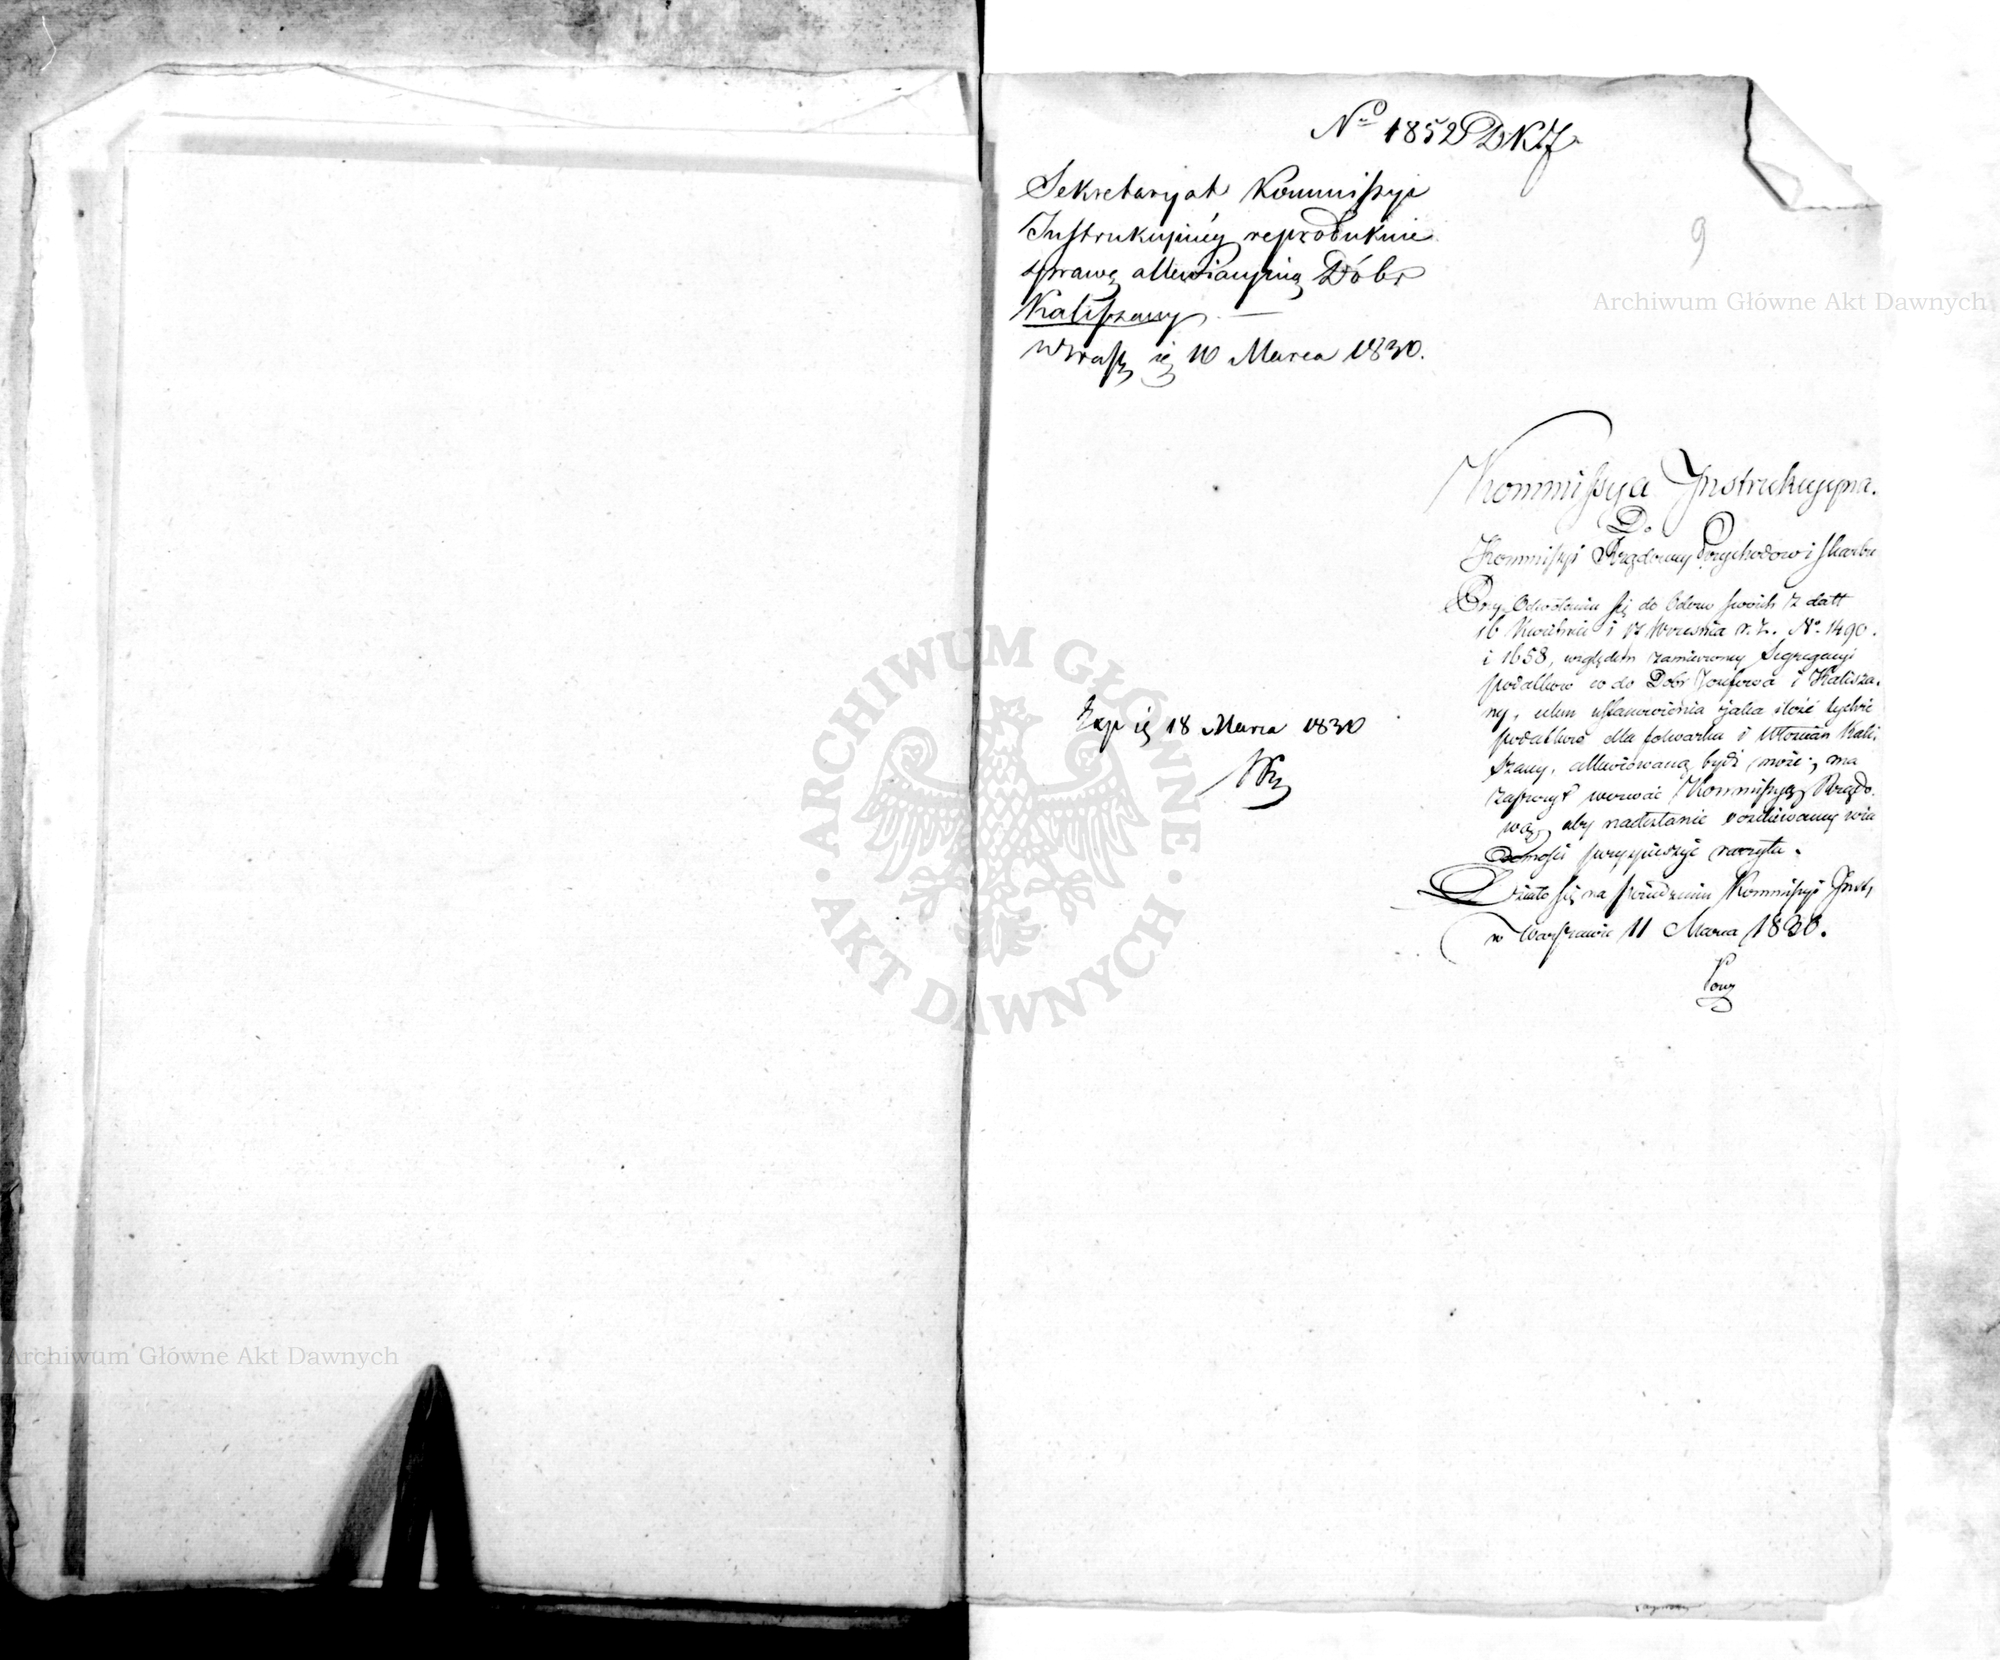 No 1852 DKJ.
9
Sekretaryat Kommissyi
Instrukcyinéy reprodukuie
sprawę allewiacyiną Dóbr
Kaliszany. —
Warsz 10 Marca 1830.
Exp 18 Marca 1830
Kommissya Instrukcyjna.
Do
Kommissyi Rządowey Przychodów i Skarbu
Przy Odwołaniu się do Odezw swoich z datt
16 Kwietnia i 17 Września r. z. No. 1490.
i 1658, względem zamierzoney Segregacyi
podatków co do Dóbr Jozefowa i Kalisza-
ny, celem ustanowienia jaka ilość tychże
podatków dla folwarku i Włościan Kali-
szany, allewiowaną bydź może, ma
zaszczyt wezwać Kommissyą Rządo-
wą, aby nadesłanie oczekiwaney wia
domości przyspieszyć raczyła.
Działo się na posiedzeniu Kommissyi Instr,
w Warszawie 11 Marca 1830.
Archiwum Główne Akt Dawnych
Archiwum Główne Akt Dawnych
ARCHIWUM GŁÓWNE
AKT DAWNYCH